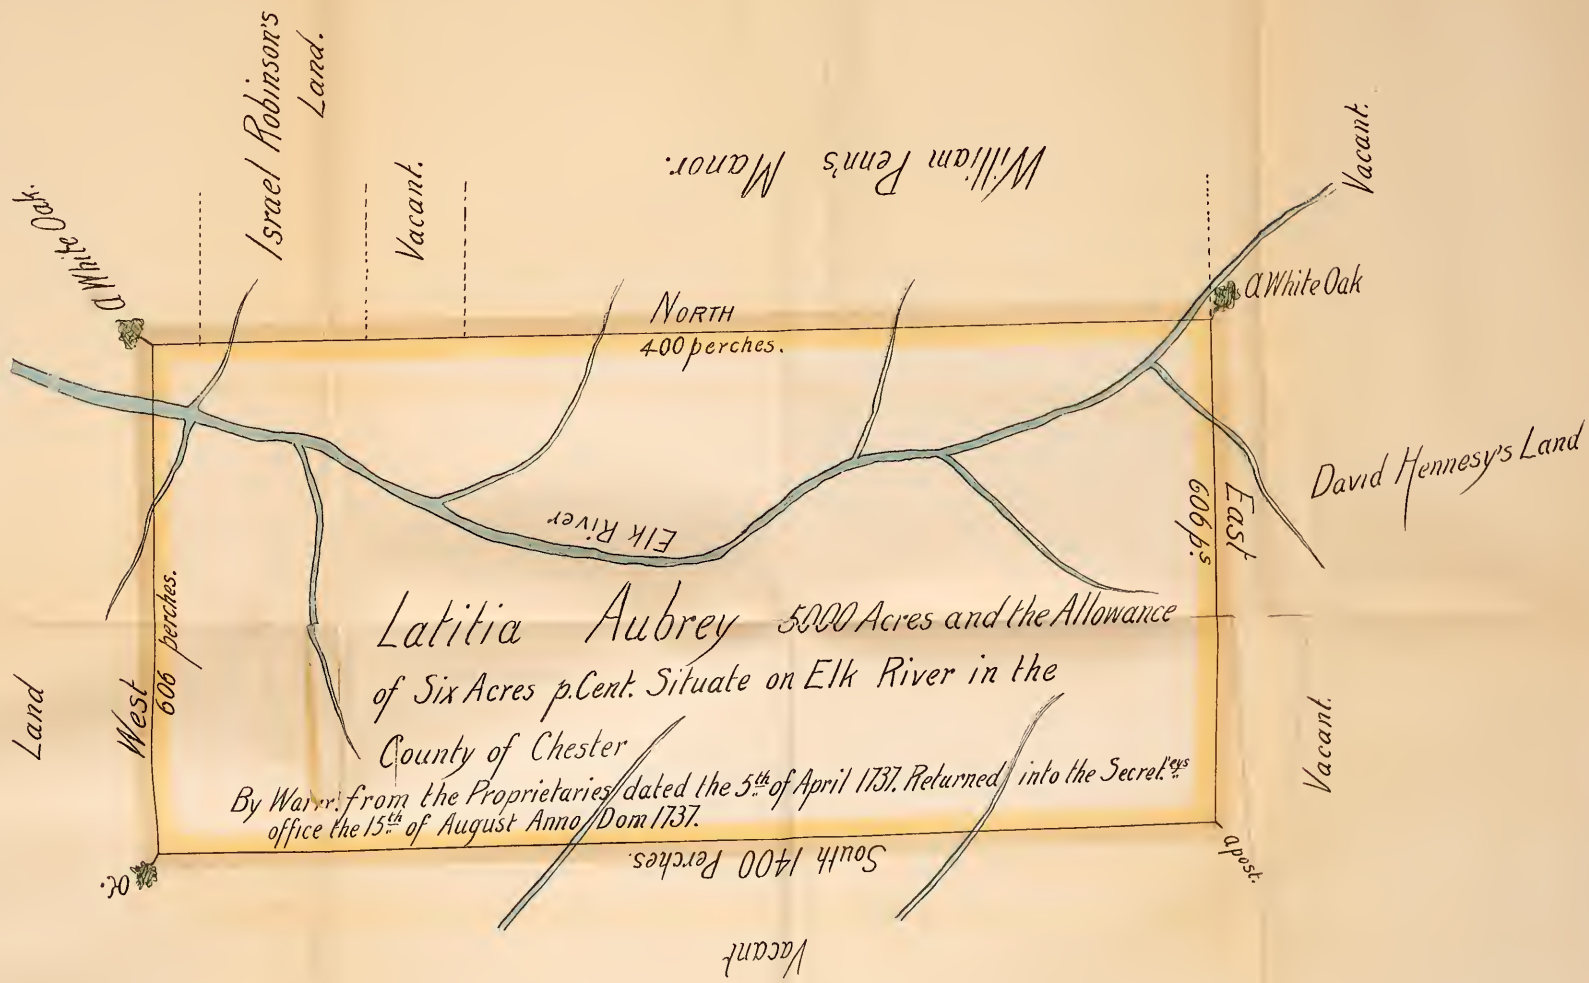 Israel Robinson's
Land.
Vacant.
William Penn's Manor.
Vacant.
a White Oak.
a White Oak
NORTH
400 perches.
David Hennesy's Land
East
606 p.s
Elk River
Latitia Aubrey 5000 Acres and the Allowance
of Six Acres p.Cent. Situate on Elk River in the
County of Chester
By Warr.t from the Proprietaries dated the 5th of April 1737. Returned into the Secret.'eys
office the 15th of August Anno Dom 1737.
Land
West
606 perches.
Vacant.
South 1400 Perches.
a post.
Vacant